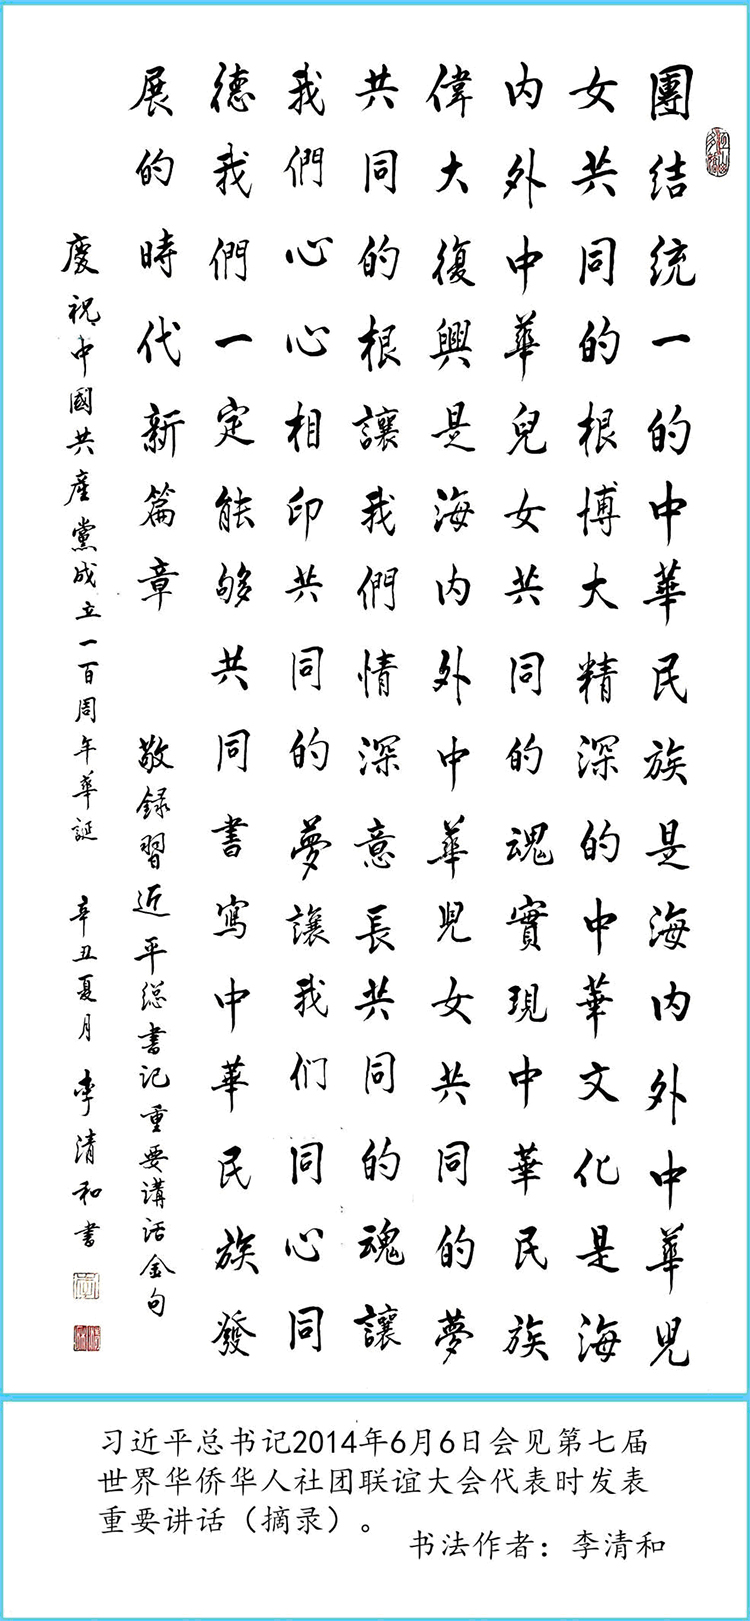 團结统一的中華民族是海内外中華兒
女共同的根博大精深的中華文化是海
内外中華兒女共同的魂實現中華民族
偉大復興是海内外中華兒女共同的夢
共同的根讓我們情深意長共同的魂讓
我們心心相印共同的夢讓我们同心同
德我們一定能够共同書寫中華民族發
展的時代新篇章
敬録習近平總書记重要講话金句
慶祝中國共産黨成立一百周年華誕 辛丑夏月 李清和書
习近平总书记2014年6月6日会见第七届
世界华侨华人社团联谊大会代表时发表
重要讲话（摘录）。
书法作者：李清和